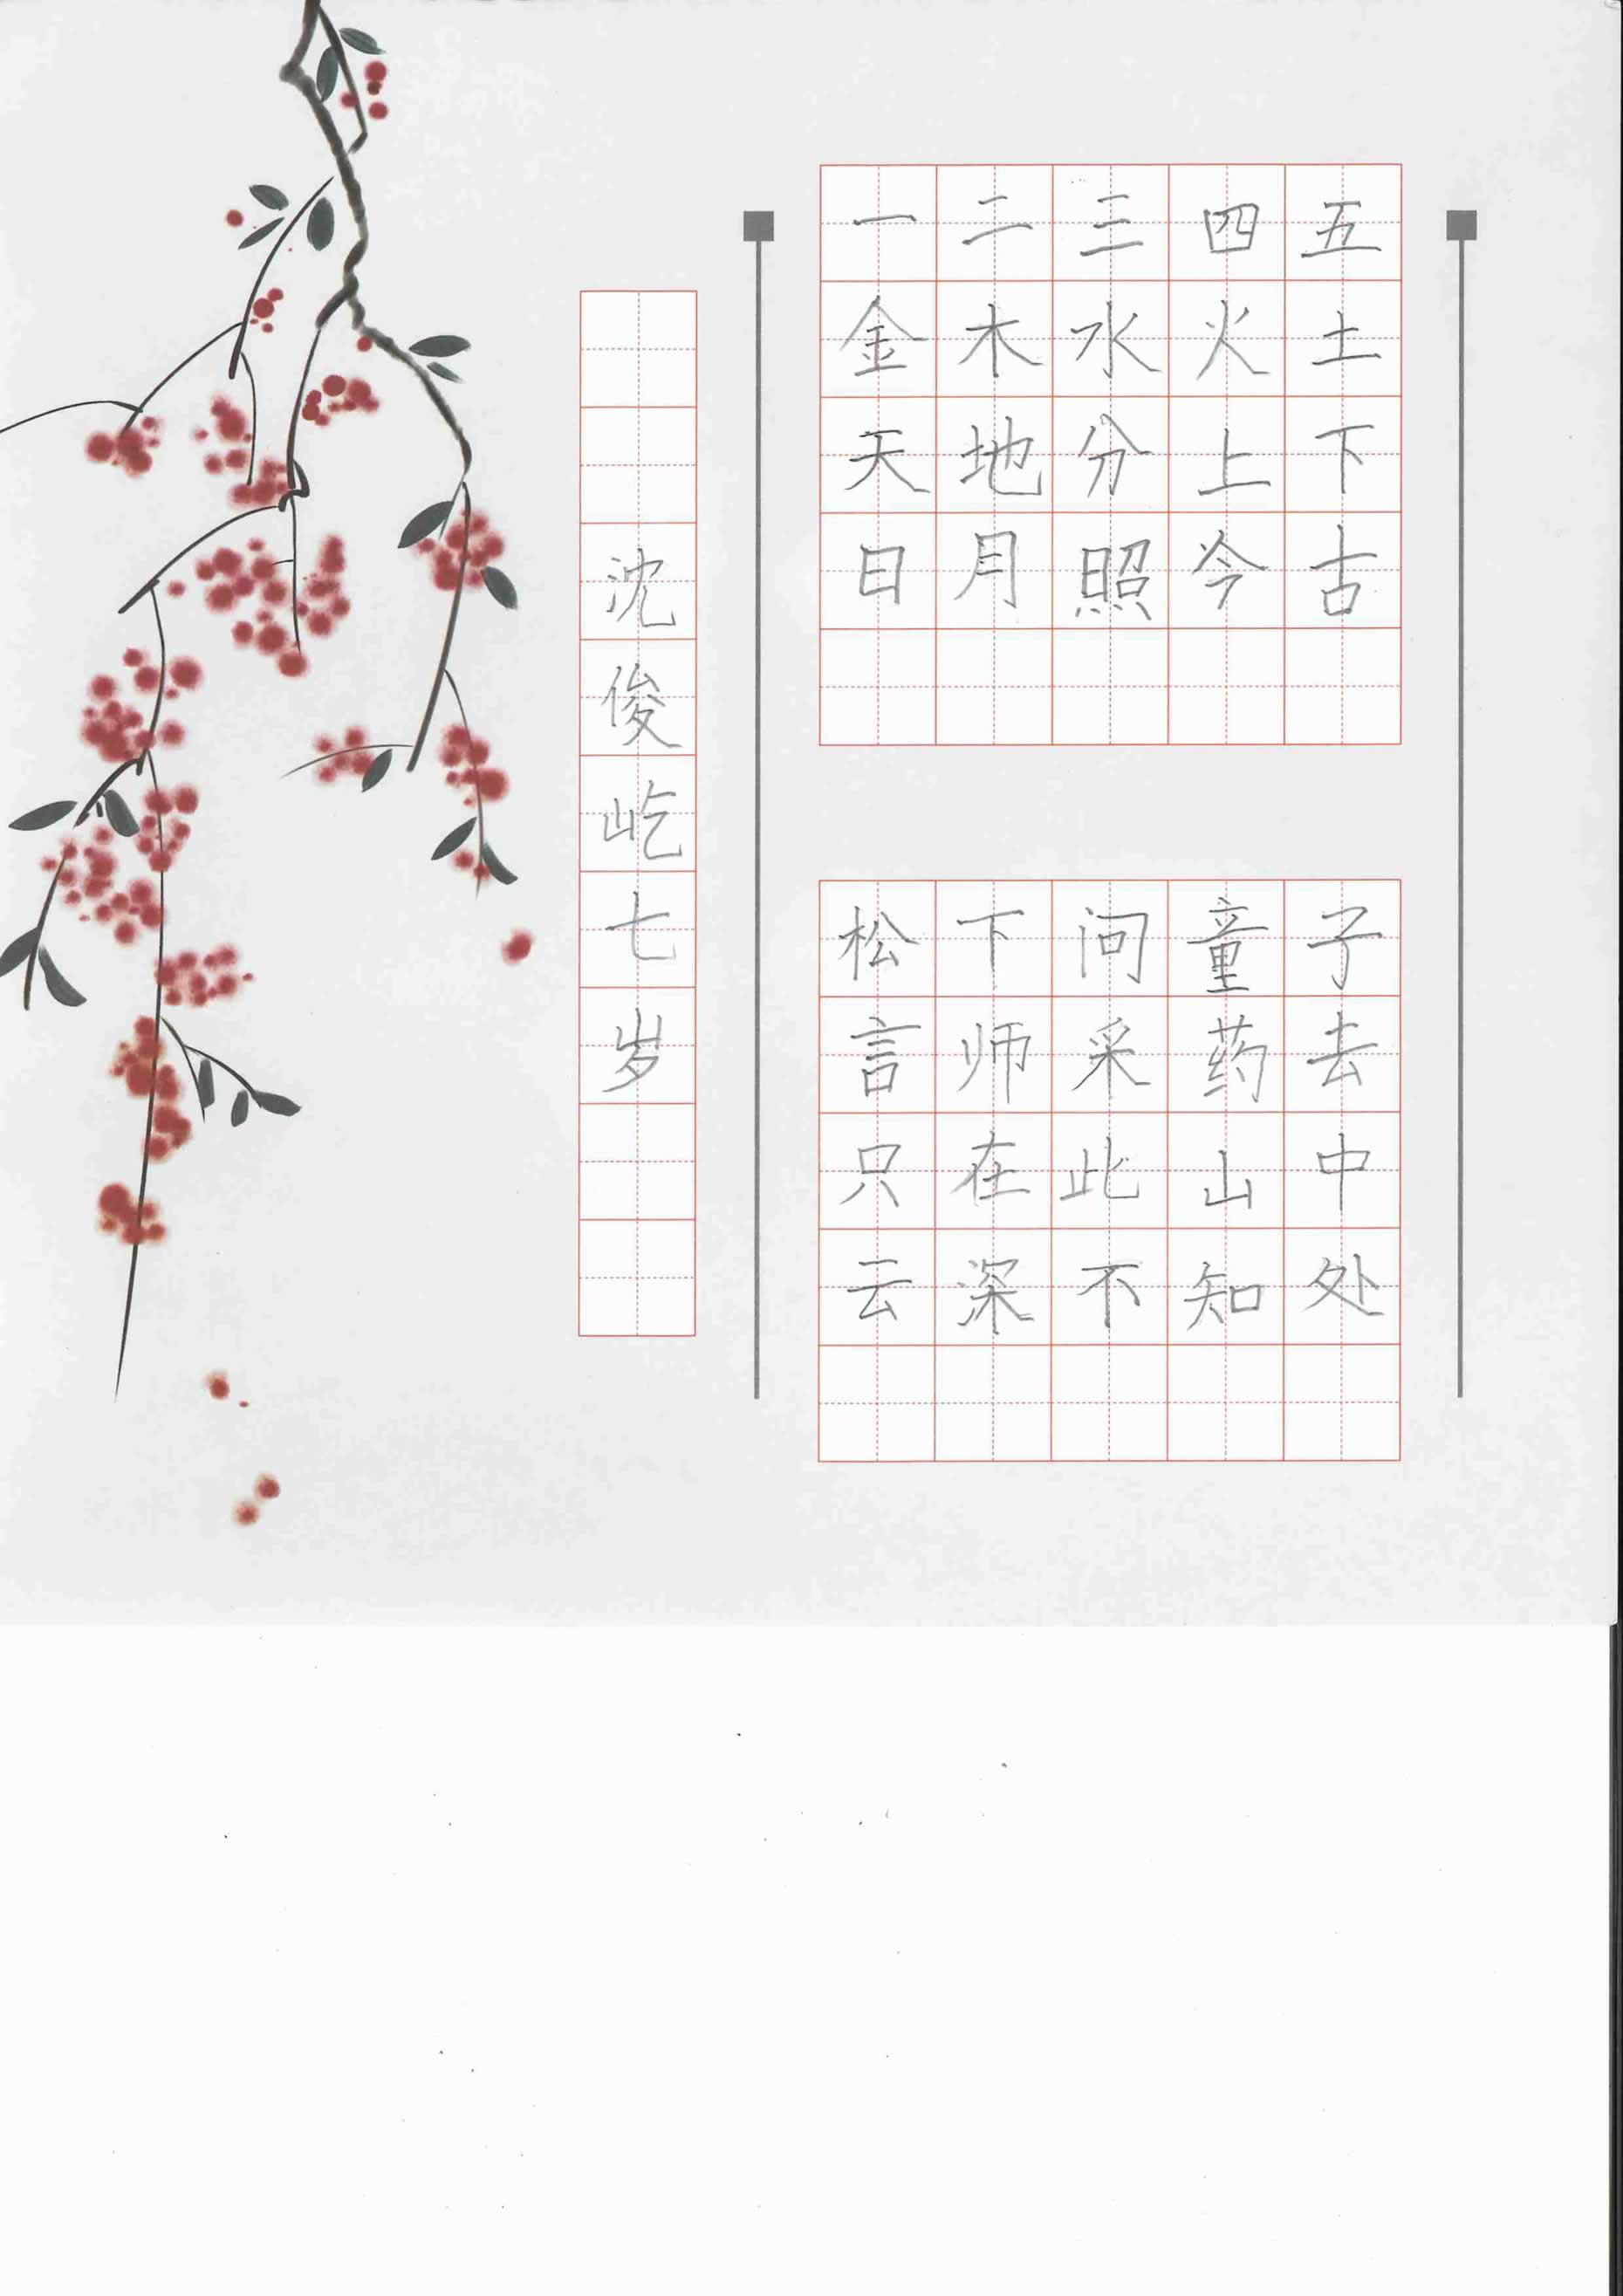 一二三四五
金木水火土
天地分上下
日月照今古
松下问童子
言师采药去
只在此山中
云深不知处
沈俊屹七岁